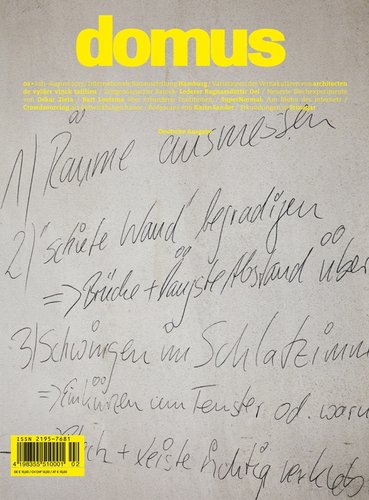 domus
02 • Juli–August 2013 / Internationale Bauausstellung Hamburg / Variationen des Vernakulären von architecten
de vylder vinck taillieu / Zeitgenössischer Barock: Lederer Ragnarsdóttir Oei / Neueste Blechexperimente
von Oskar Zieta / Bart Lootsma über erfundene Traditionen / SuperNormal: Am Motor des Internets /
Crowdsourcing als Entwicklungschance / Bodyscans von Karin Sander / Erkundungen in Stuttgart
Deutsche Ausgabe
1) Räume ausmessen
2) "schiefe Wand" begradigen
=> Brüche + Abstand über
3) Schwingen im Schlafzimm
=> Einkürzen um Fenster od. waru
+ Leiste richtig verkleb
ISSN 2195-7681
4 198355 510001 02